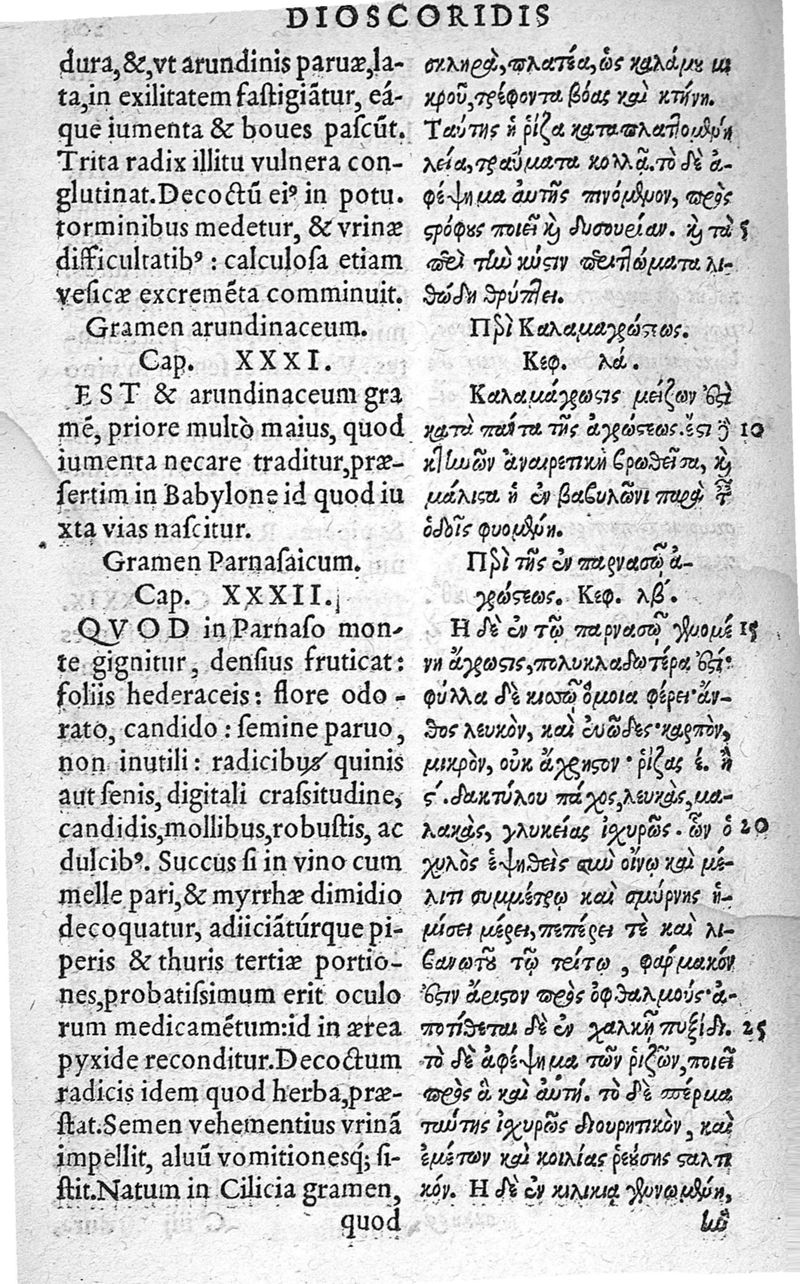 DIOSCORIDIS
dura,&,vt arundinis paruæ,la-
ta,in exilitatem fastigiãtur, eá-
que iumenta & boues pascũt.
Trita radix illitu vulnera con-
glutinat.Decoctũ eiꝰ in potu.
torminibus medetur, & vrinæ
difficultatibꝰ : calculosa etiam
vesicæ excremẽta comminuit.
Gramen arundinaceum.
Cap. XXXI.
EST & arundinaceum gra
mẽ, priore multò maius, quod
iumenta necare traditur,præ-
sertim in Babylone id quod iu
xta vias nascitur.
Gramen Parnasaicum.
Cap. XXXII.
QVOD in Parnaso mon-
te gignitur, densius fruticat:
foliis hederaceis: flore odo-
rato, candido : semine paruo,
non inutili: radicibus quinis
aut senis, digitali crassitudine,
candidis,mollibus,robustis, ac
dulcibꝰ. Succus si in vino cum
melle pari,& myrrhæ dimidio
decoquatur, adiiciãtúrque pi-
peris & thuris tertiæ portio-
nes,probatissimum erit oculo
rum medicamẽtum:id in ærea
pyxide reconditur.Decoctum
radicis idem quod herba,præ-
stat.Semen vehementius vrinã
impellit, aluũ vomitionesq; si-
stit.Natum in Cilicia gramen,
quod
σκληρὰ,πλατέα,ὡς καλάμου μι
κροῦ,τρέφοντα βόας καὶ κτήνη.
Ταύτης ἡ ῥίζα καταπλαττομένη
λεία,τραύματα κολλᾷ.τὸ δὲ ἀ-
φέψημα αὐτῆς πινόμενον, πρὸς
στρόφους ποιεῖ καὶ δυσουρίαν. καὶ τὰ 5
περὶ τὴν κύστιν ἐπιπλώματα λι-
θώδη θρύπτει.
Περὶ Καλαμαγρώστεως.
Κεφ. λά.
Καλαμάγρωστις μείζων ἐστὶ
κατὰ πάντα τῆς ἀγρώστεως.ἔστι δὲ 10
κτηνῶν ἀναιρετικὴ βρωθεῖσα, καὶ
μάλιστα ἡ ἐν βαβυλῶνι παρὰ ταῖς
ὁδοῖς φυομένη.
Περὶ τῆς ἐν παρνασῷ ἀ-
γρώστεως. Κεφ. λβ΄.
Η δὲ ἐν τῷ παρνασῷ γενομέ 15
νη ἄγρωστις,πολυκλαδωτέρα ἐστί·
φύλλα δὲ κισσῷ ὅμοια φέρει·ἄν-
θος λευκὸν, καὶ εὐῶδες·καρπὸν,
μικρὸν, οὐκ ἄχρηστον·ῥίζας ε΄. ἢ
ς΄.δακτύλου πάχος,λευκὰς,μα-
λακὰς, γλυκείας ἰσχυρῶς. ὧν ὁ 20
χυλὸς ἑψηθεὶς σὺν οἴνῳ καὶ μέ-
λιτι συμμέτρῳ καὶ σμύρνης ἡ-
μίσει μέρει,πεπέρει τὲ καὶ λι-
βανωτοῦ τῷ τρίτῳ, φάρμακόν
ἐστιν ἄριστον πρὸς ὀφθαλμούς·ἀ-
ποτίθεται δὲ ἐν χαλκῇ πυξίδι. 25
τὸ δὲ ἀφέψημα τῶν ῥιζῶν,ποιεῖ
πρὸς ἃ καὶ αὐτή. τὸ δὲ σπέρμα
ταύτης ἰσχυρῶς διουρητικὸν, καὶ
ἐμέτων καὶ κοιλίας ῥεύσης σταλτι
κόν. Η δὲ ἐν κιλικίᾳ γενομένη,